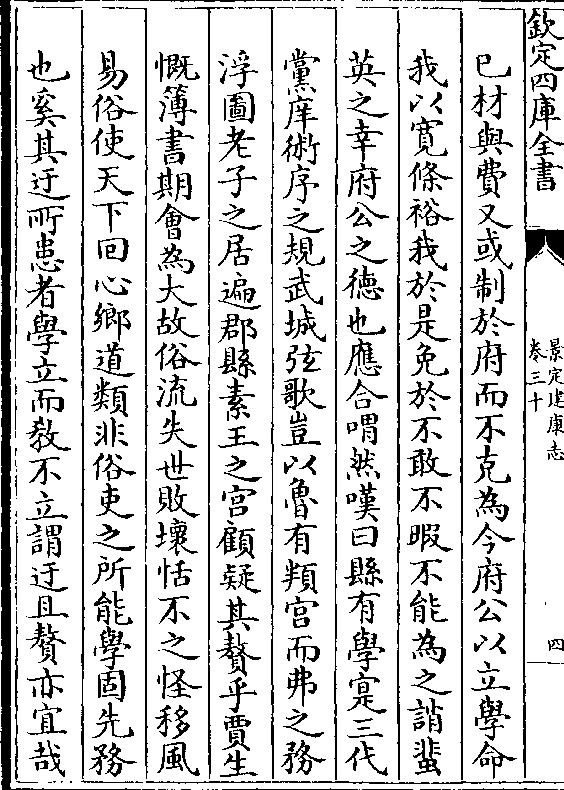 欽定四庫全書
景定建康志
卷三十
四
已材與費又或制於府而不克為今府公以立學命
我以寛條裕我於是免於不敢不暇不能為之誚蜚
英之幸府公之徳也應合喟然嘆曰縣有學寔三代
黨庠術序之規武城弦歌豈以魯有頖宫而弗之務
浮圖老子之居遍郡縣素王之宫顧疑其贅乎賈生
慨簿書期會為大故俗流失世敗壊恬不之怪移風
易俗使天下回心鄉道類非俗吏之所能學固先務
也奚其迂所患者學立而教不立謂迂且贅亦宜哉